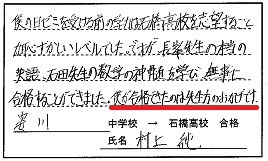 僕の日ビミを受ける前の学力は石橋高校を志望すること
が恥ずかしいレベルでした。ですが、長峯先生の本当の
英語、石田先生の数学の神髄を学び、無事に
合格することができました。僕が合格できたのは先生方のおかげです。
中学校 → 石橋高校 合格
氏名 村上